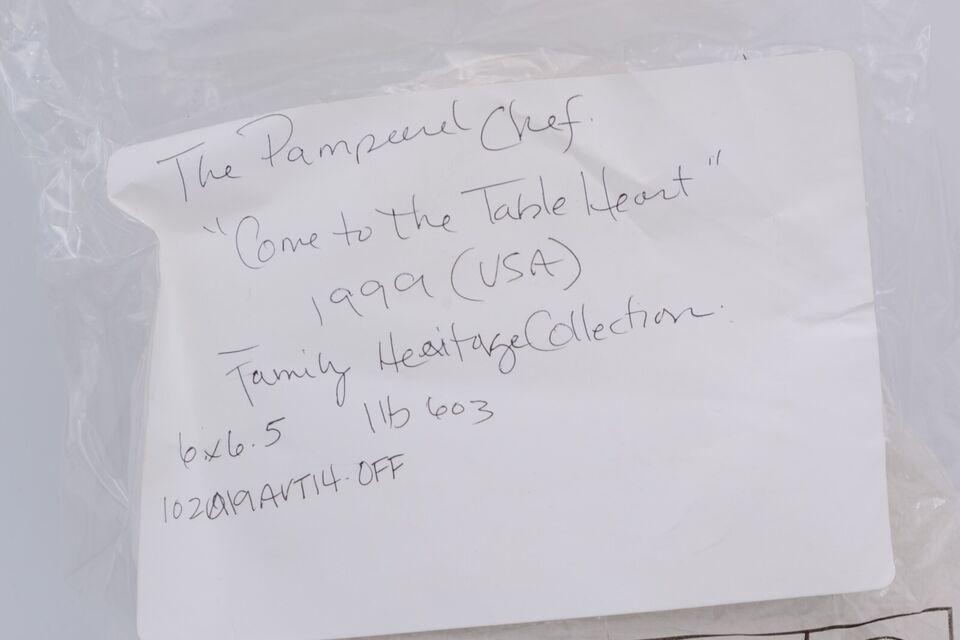 The Pampered Chef.
"Come to the Table Heart"
1999 (USA)
Family Heritage Collection.
6x6.5 1lb 6oz
102019AVT14-OFF